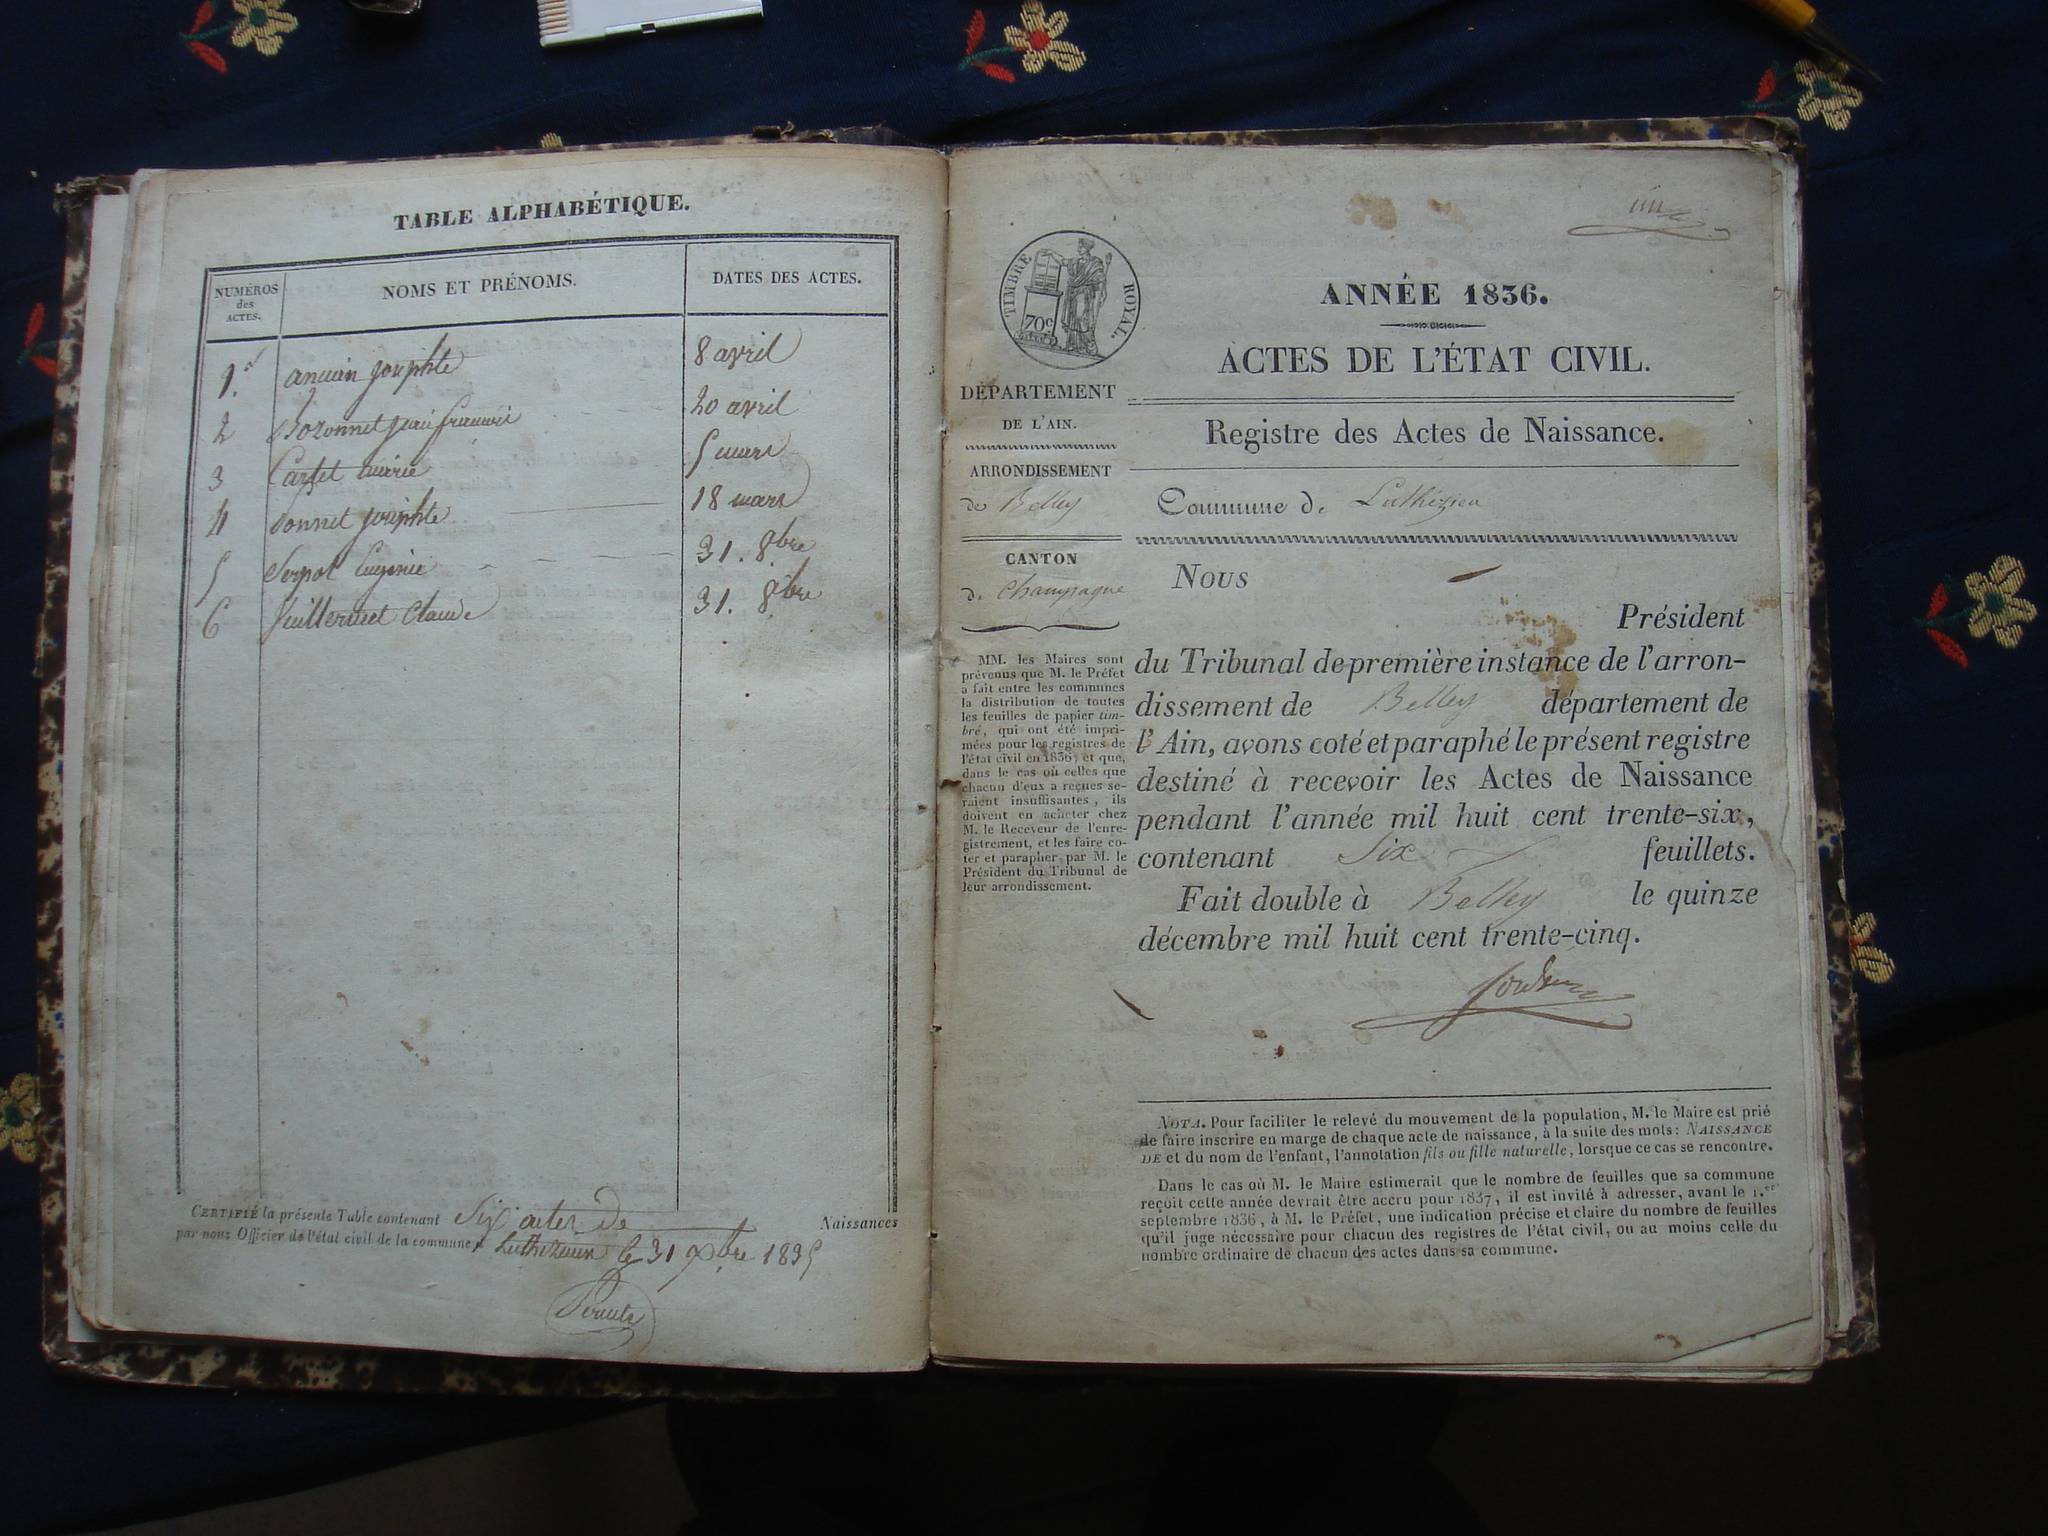 TABLE ALPHABÉTIQUE.
NUMÉROS des ACTES.
NOMS ET PRÉNOMS.
DATES DES ACTES.
1. Josephte 8 avril
2 Bozonnet 20 avril
3 Carset Marie 5 mars
4 Bonnet Josephte 18 mars
5 Serpol Eugénie 31. 8bre
6 Vuillermet Claude 31. 8bre
CERTIFIÉ la présente Table contenant Six actes de Naissances
par nous Officier de l'état civil de la commune 31 1835
ANNÉE 1836.
ACTES DE L'ÉTAT CIVIL.
Registre des Actes de Naissance.
Commune de Luthézieu
TIMBRE ROYAL.
70c
DÉPARTEMENT
DE L'AIN.
ARRONDISSEMENT
de Belley
CANTON
de Champagne
MM. les Maires sont
prévenus que M. le Préfet
a fait entre les communes
la distribution de toutes
les feuilles de papier tim-
bré, qui ont été impri-
mées pour les registres de
l'état civil en 1836; et que,
dans le cas où celles que
chacun d'eux a reçues se-
raient insuffisantes, ils
doivent en acheter chez
M. le Receveur de l'enre-
gistrement, et les faire co-
ter et parapher par M. le
Président du Tribunal de
leur arrondissement.
NOUS
Président
du Tribunal de première instance de l'arron-
dissement de Belley département de
l'Ain, avons coté et paraphé le présent registre
destiné à recevoir les Actes de Naissance
pendant l'année mil huit cent trente-six,
contenant Six feuillets.
Fait double à Belley le quinze
décembre mil huit cent trente-cinq.
NOTA. Pour faciliter le relevé du mouvement de la population, M. le Maire est prié
de faire inscrire en marge de chaque acte de naissance, à la suite des mots: NAISSANCE
DE et du nom de l'enfant, l'annotation fils ou fille naturelle, lorsque ce cas se rencontre.
Dans le cas où M. le Maire estimerait que le nombre de feuilles que sa commune
reçoit cette année devrait être accru pour 1837, il est invité à adresser, avant le 1.er
septembre 1836, à M. le Préfet, une indication précise et claire du nombre de feuilles
qu'il juge nécessaire pour chacun des registres de l'état civil, ou au moins celle du
nombre ordinaire de chacun des actes dans sa commune.